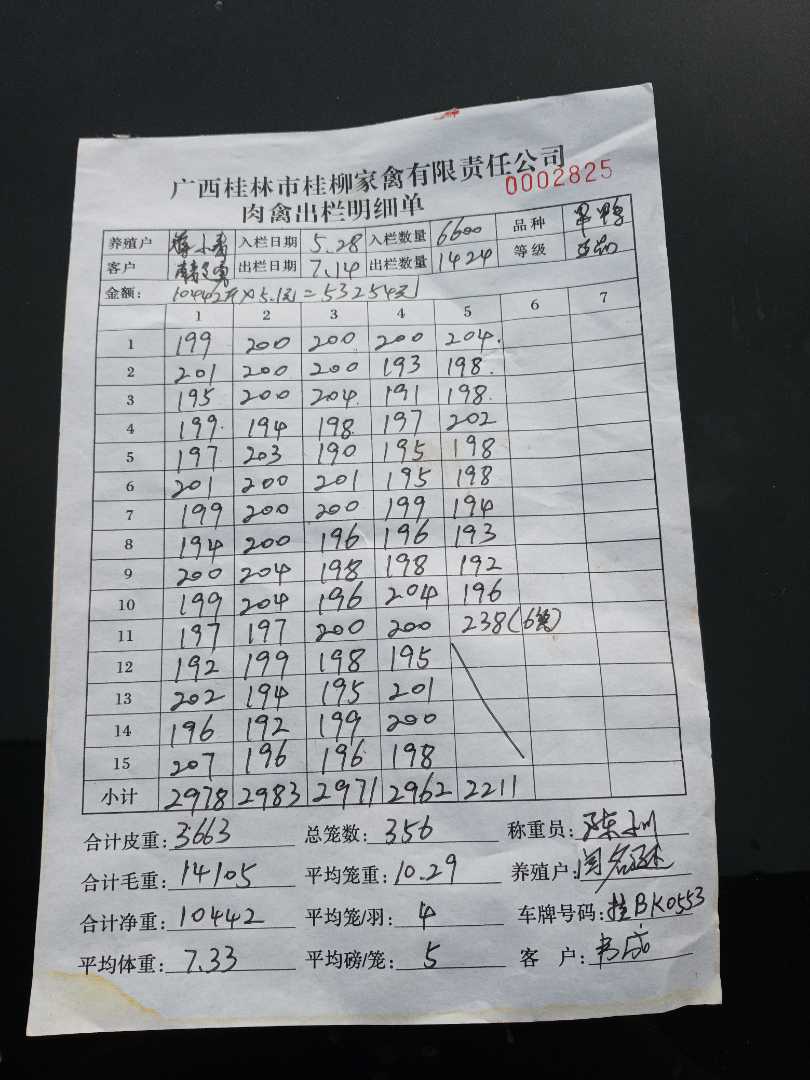 广西桂林市桂柳家禽有限责任公司
0002825
肉禽出栏明细单
养殖户 入栏日期 5.28 入栏数量 6600 品种
客户 出栏日期 7.14 出栏数量 1424 等级
金额: 10442斤×5.1元=53254元
1 2 3 4 5 6 7
1 199 200 200 200 204.
2 201 200 200 193 198.
3 195 200 204. 191 198.
4 199. 194 198. 197 202
5 197 203 190 195 198
6 201 200 201 195 198
7 199 200 200 199 194
8 194 200 196 196 193
9 200 204 198 198 192
10 199 204 196 204 196
11 197 197 200 200 238(6笼)
12 192 199 198 195
13 202 194 195 201
14 196 192 199 200
15 207 196 196 198
小计 2978 2983 2971 2962 2211
合计皮重: 3663 总笼数: 356 称重员:
合计毛重: 14105 平均笼重: 10.29 养殖户:
合计净重: 10442 平均笼/羽: 4 车牌号码: 桂BK0553
平均体重: 7.33 平均磅/笼: 5 客 户: